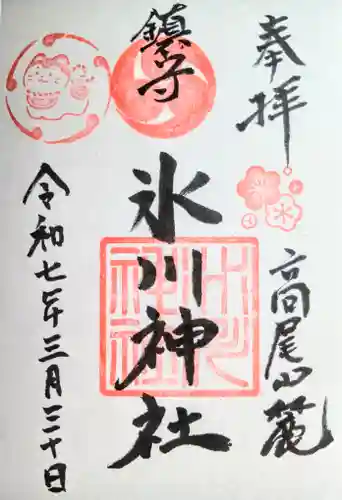 奉拝
高尾山麓
鎮守
氷川神社
令和七年三月三十日